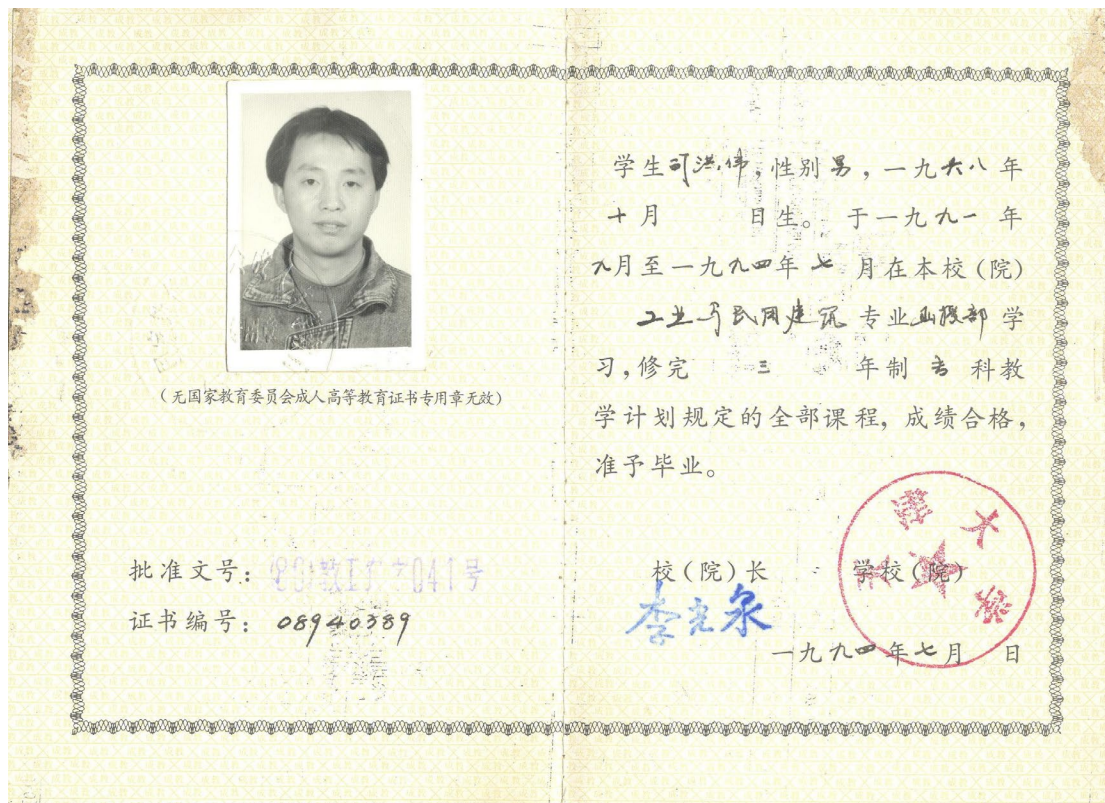 (无国家教育委员会成人高等教育证书专用章无效)
批准文号:
证书编号: 08940389
学生司洪伟,性别男,一九六八年
十月 日生。于一九九一年
九月至一九九四年七月在本校(院)
工业与民用建筑专业函授部学
习,修完 三 年制专科教
学计划规定的全部课程,成绩合格,
准予毕业。
校(院)长 学校(院)
李光泉
一九九四年七月 日